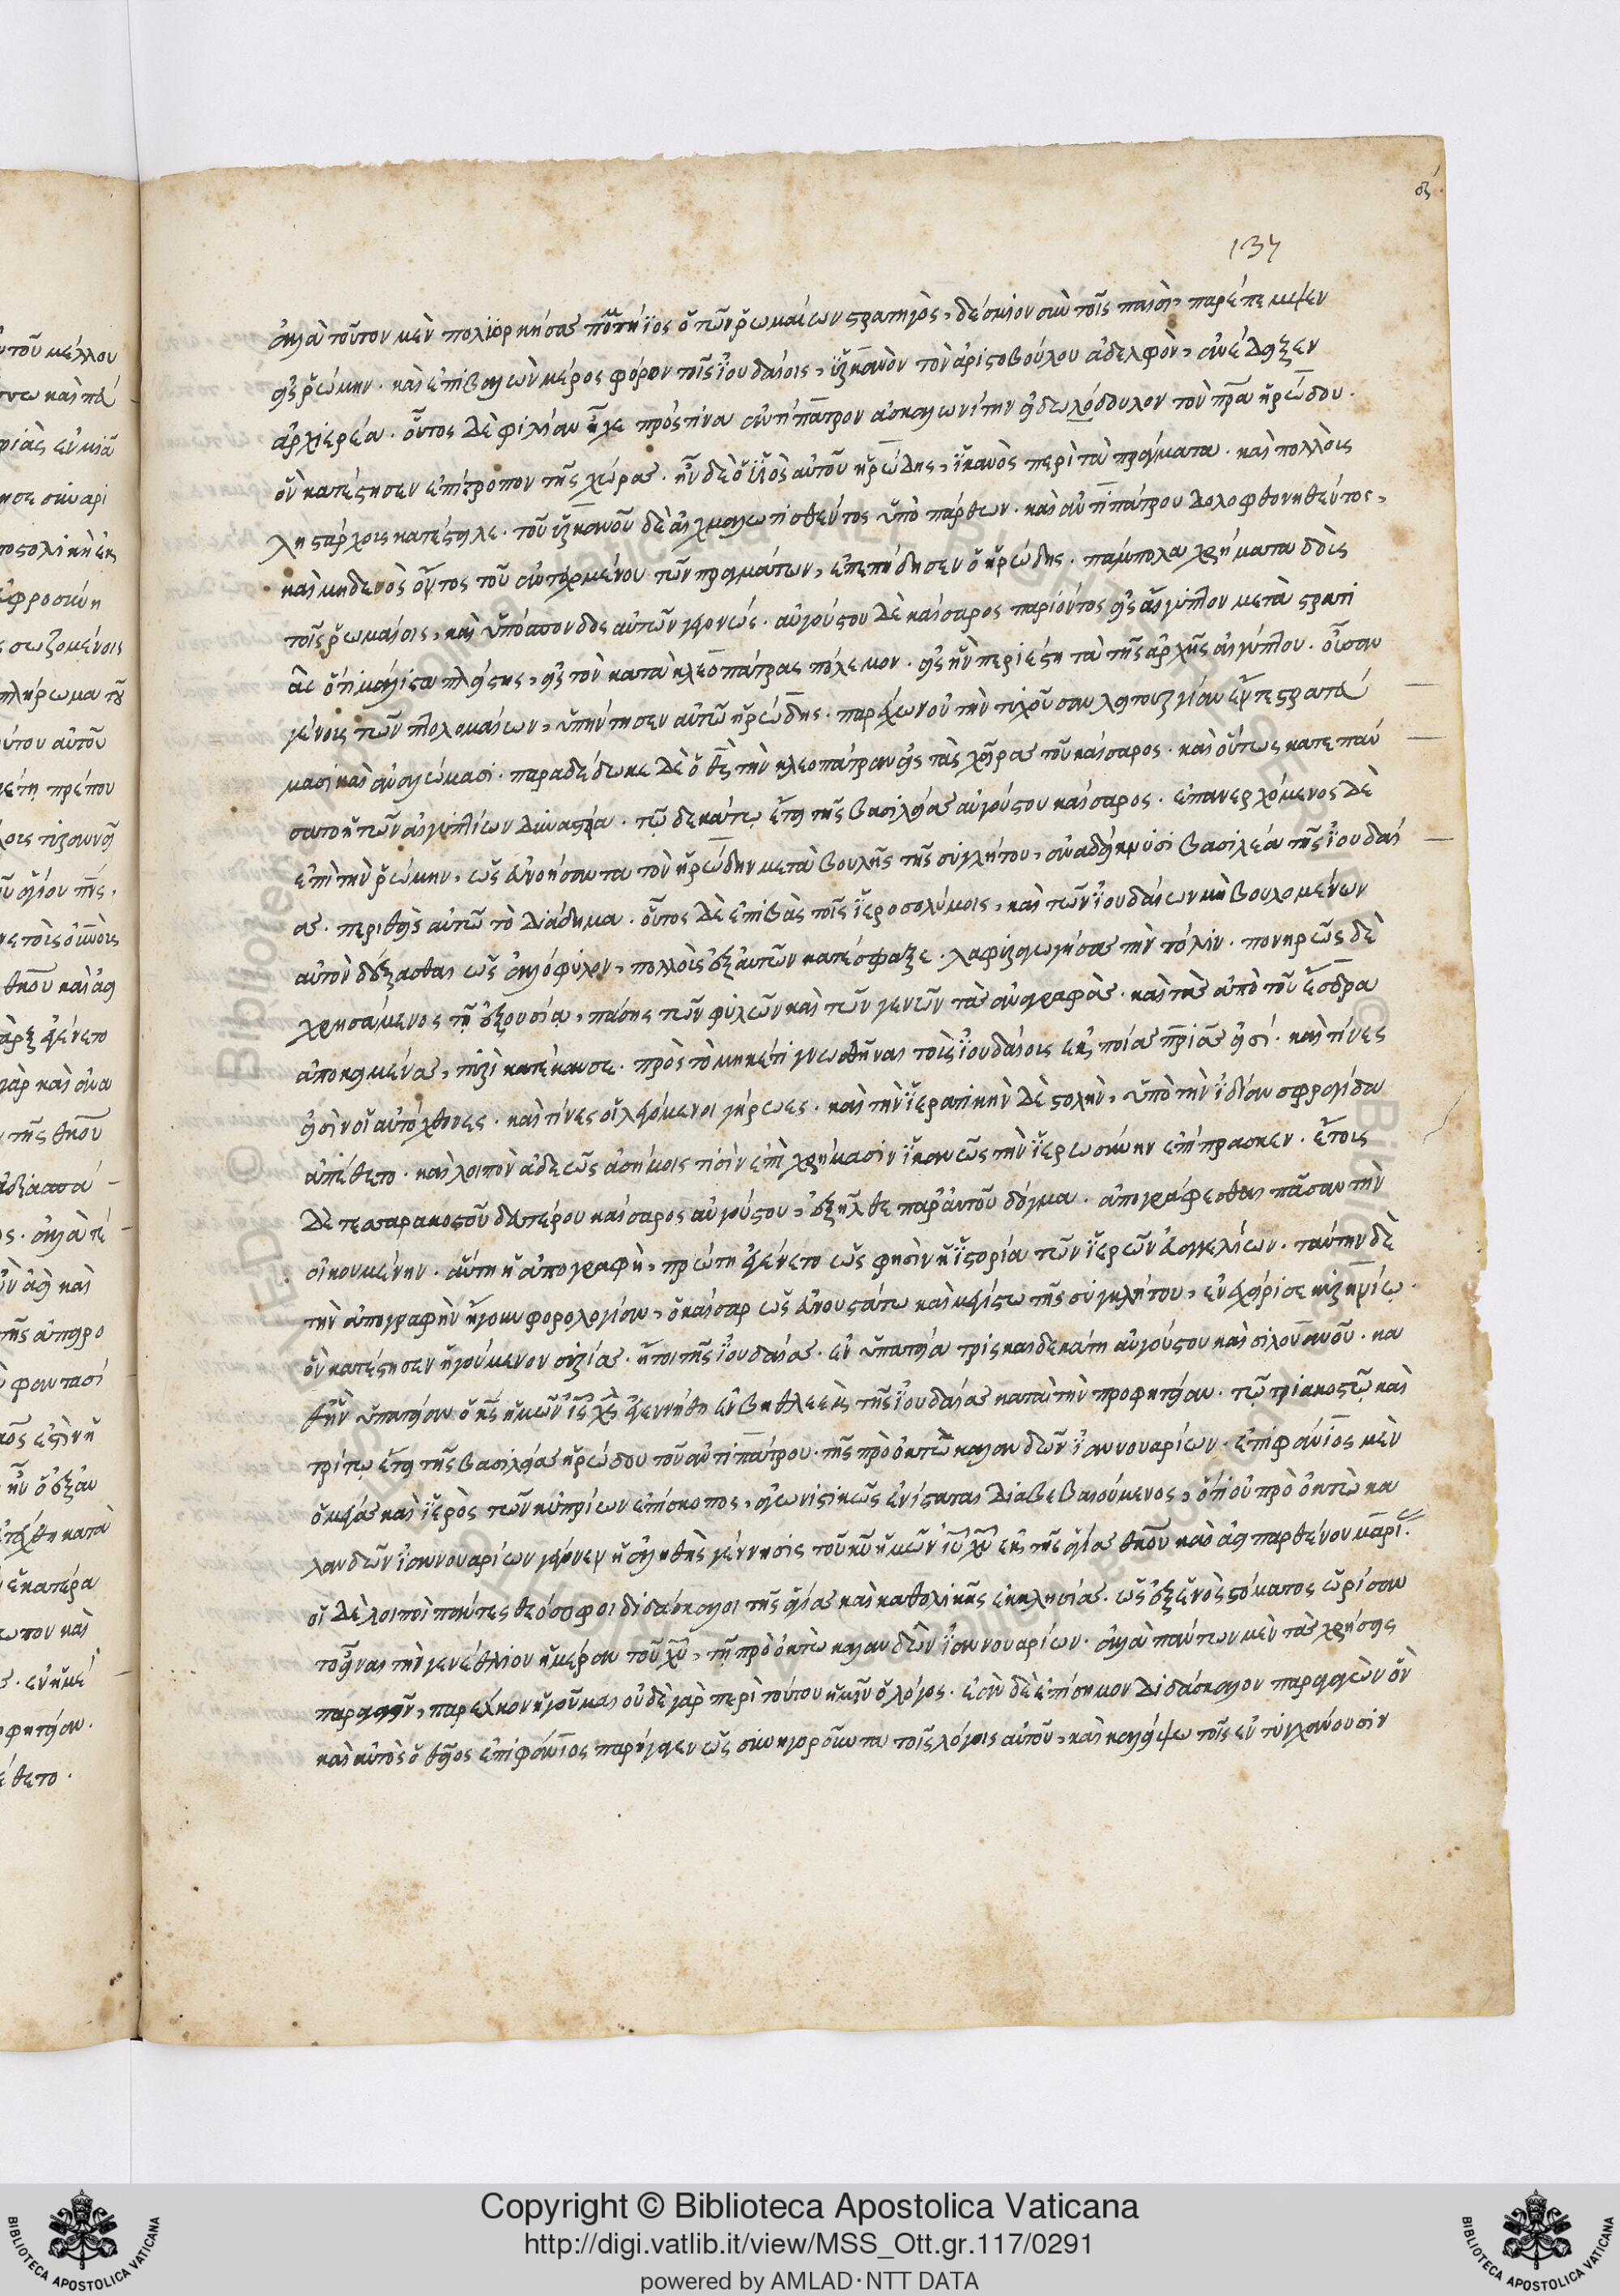 137
ἀλλὰ τοῦτον μὲν πολιορκήσας πομπήϊος ὁ τῶν ῥωμαίων στρατηγὸς, δέσμιον σὺν τοῖς παισὶ, παρέπεμψεν
εἰς ῥώμην. καὶ ἐπιβαλὼν μέρος φόρον τοῖς ἰουδαίοις, ὑρκανὸν τὸν ἀριστοβούλου ἀδελφὸν, ἀνέδειξεν
ἀρχιερέα. οὗτος δὲ φιλίαν εἶχε πρός τινα ἀντίπατρον ἀσκαλωνίτην εἰδωλόδουλον τὸν πρα ἡρώδου.
ὃν κατέστησεν ἐπίτροπον τῆς χώρας. ἦν δὲ ὁ ϊὸς αὐτοῦ ἡρώδης, ἱκανὸς περὶ τὰ πράγματα. καὶ πολλοὺς
ληστάρχους κατέστειλε. τοῦ ὑρκανοῦ δὲ αἰχμαλωτισθέντος ὑπὸ πάρθων. καὶ ἀντιπάτρου δολοφονηθέντος,
καὶ μηδενὸς ὄντος τοῦ ἀντεχομένου τῶν πραγμάτων, ἐπεπήδησεν ὁ ἡρώδης. πάμπολα χρήματα δοὺς
τοῖς ῥωμαίοις, καὶ ὑπόσπονδος αὐτῶν γεγονώς. αὐγούστου δὲ καίσαρος παριόντος εἰς αἴγυπτον μετὰ στρατι
ᾶς ὅτι μάλιστα πλείστης, εἰς τὸν κατὰ κλεοπάτρας πόλεμον. εἰς ἣν περιέστη τὰ τῆς ἀρχῆς αἰγύπτου. οὖσαν
γένους τῶν πτολομαίων, ὑπήντησεν αὐτῶ ἡρώδης. παρέχων οὐ τὴν τυχοῦσαν λειτουργίαν ἔν τε στρατεύ
μασι καὶ ἀναλώμασι. παραδέδωκε δὲ ὁ θς τὴν κλεοπάτραν εἰς τὰς χεῖρας τοῦ καίσαρος. καὶ οὕτως κατεπαύ
σατο ἡ τῶν αἰγυπτίων δυναστεία. τῷ δεκάτῳ ἔτει τῆς βασιλείας αὐγούστου καίσαρος. ἐπανερχόμενος δὲ
ἐπὶ τὴν ῥώμην, ὡς εὐνοήσαντα τὸν ἡρώδην μετὰ βουλῆς τῆς συγλήτου, ἀναδείκνυσι βασιλέα τῆς ἰουδαί
ας. περιθεὶς αὐτῶ τὸ διάδημα. οὗτος δὲ ἐπιβὰς τοῖς ἱεροσολύμοις, καὶ τῶν ἰουδαίων μὴ βουλομένων
αὐτὸν δέξασθαι ὡς ἀλλόφυλον, πολλοὺς ἐξ αὐτῶν κατέσφαξε. λαφυραγωγήσας τὴν πόλιν. πονηρῶς δὲ
χρησάμενος τῇ ἐξουσίᾳ, πάσης τῶν φυλῶν καὶ τῶν γενῶν τὰς ἀναγραφὰς. καὶ τὰς ἀπὸ τοῦ ἔσδρα
ἀποκειμένας, πυρὶ κατέκαυσε. πρὸς τὸ μηκέτι γνωσθῆναι τοὺς ἰουδαίους ἐκ ποίας πριᾶς εἰσί. καὶ τίνες
εἰσὶν οἱ αὐτόχθονες. καὶ τίνες οἱ λεγόμενοι γήρωες. καὶ τὴν ἱερατικὴν δὲ στολὴν, ὑπὸ τὴν ἰδίαν σφραγίδα
ἀπέθετο. καὶ λοιπὸν ἀδεῶς ἀσήμοις τισὶν ἐπὶ χρήμασιν ἱκανῶς τὴν ἱερωσύνην ἐπίπρασκεν. ἔτους
δὲ τεσσαρακοστοῦ δευτέρου καίσαρος αὐγούστου, ἐξῆλθε παρ' αὐτοῦ δόγμα. ἀπογράφεσθαι πᾶσαν τὴν
οἰκουμένην. αὕτη ἡ ἀπογραφὴ, πρώτη ἐγένετο ὡς φησὶν ἡ ἱστορία τῶν ἱερῶν εὐαγγελίων. ταύτην δὲ
τὴν ἀπογραφὴν ἤγουν φορολογίαν, ὁ καίσαρ ὡς εὐνουστάτω καὶ μεγίστω τῆς συγκλήτου, ἐνεχείρισε κυρηνίῳ.
ὃν κατέστησεν ἡγούμενον συρίας. ἤτοι τῆς ἰουδαίας. ἐν ὑπατεία τρισκαιδεκάτη αὐγούστου καὶ σιλουανοῦ. κα
θ' ἣν ὑπατείαν ὁ κς ἡμῶν ις χς ἐγεννήθη ἐν βηθλεὲμ τῆς ἰουδαίας κατὰ τὴν προφητείαν. τῷ τριακοστῷ καὶ
τρίτῳ ἔτει τῆς βασιλείας ἡρώδου τοῦ ἀντιπάτρου. τῆς πρὸ ὀκτὼ καλανδῶν ἰαννουαρίων. ἐπιφάνιος μὲν
ὁ μέγας καὶ ἱερὸς τῶν κυπρίων ἐπίσκοπος, ἀγωνιστικῶς ἐνίσταται διαβεβαιούμενος, ὅτι οὐ πρὸ ὀκτὼ κα
λανδῶν ἰαννουαρίων γέγονεν ἡ ἀληθὴς γέννησις τοῦ κυ ἡμῶν ιυ χυ ἐκ τῆς ἁγίας θκου καὶ ἀεὶ παρθένου μαρί.
οἱ δὲ λοιποὶ πάντες θεόσοφοι διδάσκαλοι τῆς ἁγίας καὶ καθολικῆς ἐκκλησίας. ὡς ἐξ ἑνὸς στόματος ὥρισαν
τοῦ εἶναι τὴν γενέθλιον ἡμέραν τοῦ χυ, τῇ πρὸ ὀκτὼ καλανδῶν ἰαννουαρίων. ἀλλὰ πάντων μὲν τὰς χρήσεις
παραγαγεῖν, παρέλκον ἡγοῦμαι οὐδὲ γὰρ περὶ τούτου ἡμῖν ὁ λόγος. ἕνα δὲ ἐπίσημον διδάσκαλον παραγαγὼν ὃν
καὶ αὐτὸς ὁ θεῖος ἐπιφάνιος παρήγαγεν ὡς συνηγοροῦντα τοῖς λόγοις αὐτοῦ, καὶ καλύψω τοῖς ἐντυγχάνουσιν
Copyright © Biblioteca Apostolica Vaticana
http://digi.vatlib.it/view/MSS_Ott.gr.117/0291
powered by AMLAD·NTT DATA
BIBLIOTECA APOSTOLICA VATICANA
BIBLIOTECA APOSTOLICA VATICANA